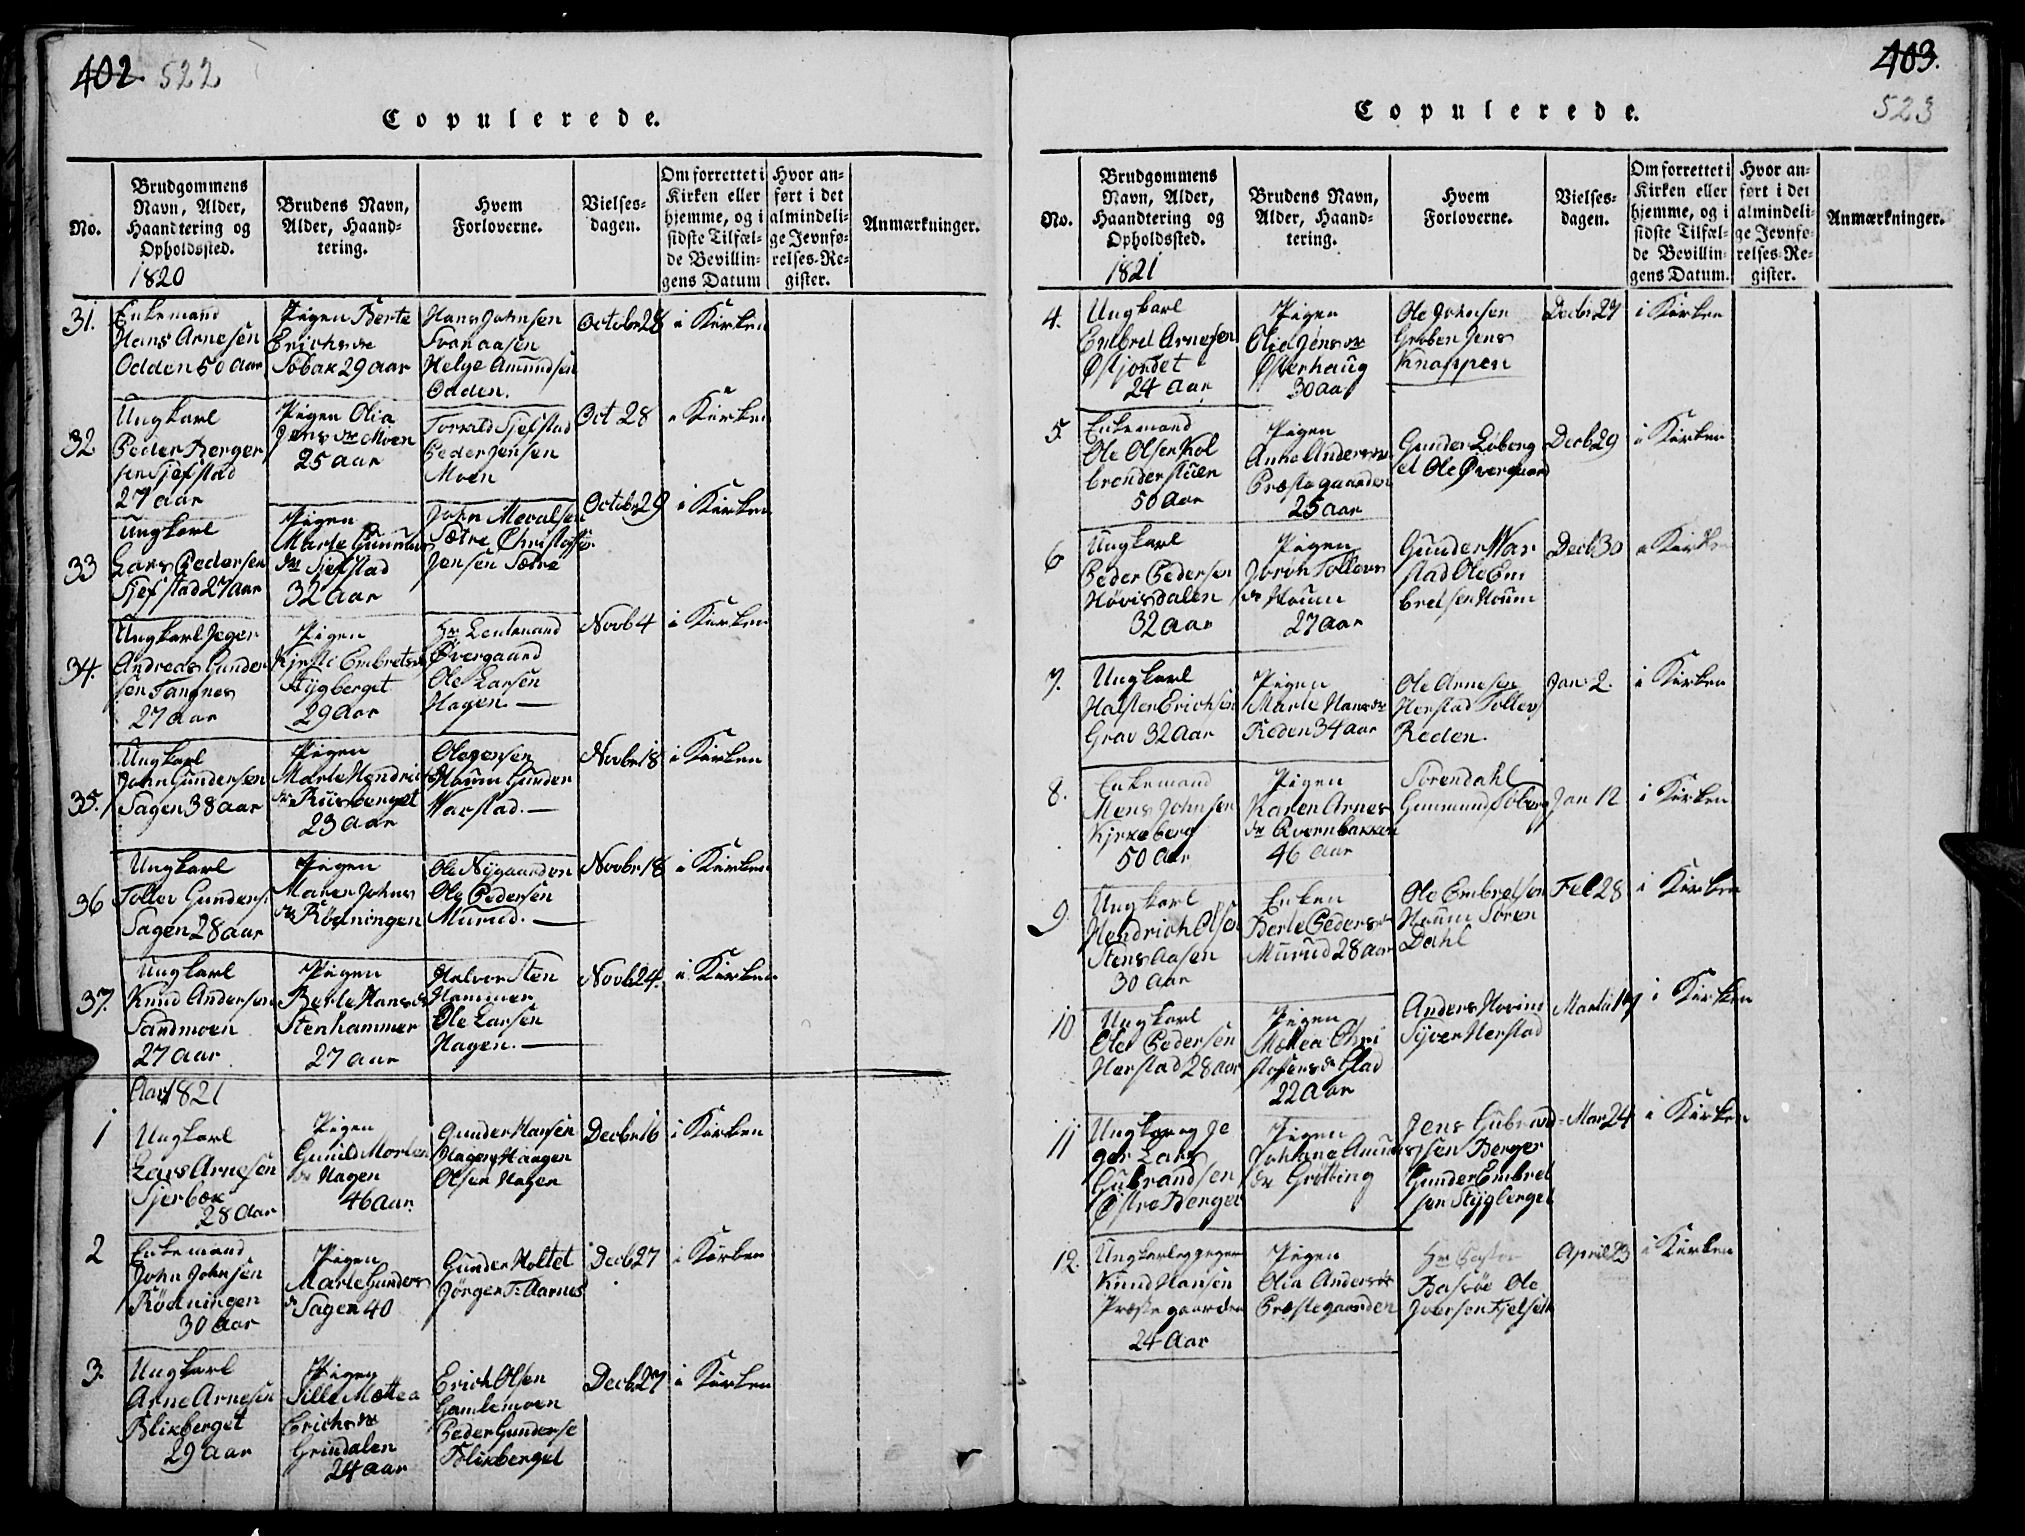 402. 522
Copulerede.
No.
Brudgommens
Navn, Alder,
Haandtering og
Opholdssted.
1820
Brudens Navn,
Alder, Haand-
tering.
Hvem
Forloverne.
Vielses-
dagen.
Om forrettet i
Kirken eller
hjemme, og i
sidste Tilfæl-
de Bevillin-
gens Datum
Hvor an-
ført i det
almindeli-
ge Jevnfø-
relses-Re-
gister.
Anmærkninger.
31.
Enkemand
Hans Arnesen
Odden 50 Aar
Pigen Berte
Erichsdr
Sobak 29 aar
Hans Johnsen
Svanaasen
Helge Amundsen
Odden.
Octobr 28
i Kirken
32
Ungkarl
Peder Berger
sen Sjefstad
27 aar
Pigen Olia
Jensdr Moen
25 aar
Torvald Sjefstad
Peder Jensen
Moen
Oct 28
i Kirken
33
Ungkarl
Lars Pedersen
Sjefstad 27 Aar
Pigen
Marte
dr Sjefstad
32 aar
John
Sætre Christophs
Jensen Sætre
Octobr 29
i Kirken
34.
Ungkarl Jeger
Andreas Gunder
sen Tangnes
27 aar
Pigen
Kjersti Embretsdr
Stygberget
29 Aar
Hr Leutenand
Øvergaard
Ole Larsen
Hagen. —
Novb 4
i Kirken
35.
Ungkarl
John Gundersen
Sagen 38 aar
Pigen
Marte Hendrichs
dr Riisberget
23 aar
Ole Jensen
Houm Gunder
Warstad. —
Novbr 18
i Kirken
36
Ungkarl
Tollev Gunders.
Sagen 28 aar
Pigen
Maren Johns
dr Rödningen
Ole Nÿgaarden
Ole Pedersen
Murud. —
Novbr 18
i Kirken
37.
Ungkarl
Knud Andersen
Sandmoen
27 aar
Pigen
Berte Hansdr
Stenhammer
27 aar
Halvor Sten
Hammer
Ole Larsen
Hagen. —
Novb 24
i Kirken
Aar 1821
1
Ungkarl
Lars Arnesen
Sjerbæk
28 Aar
Pigen
Gunild Morten
dr Hagen
46 Aar
Gunder Hansen
Hagen Haagen
Olsen Hagen
Decbr 16
i Kirken
2
Enkemand
John Johnsen
Rödningen
30 Aar
Pigen
Marte Gunders
dr Sagen 40
Gunder Holtet
Jörgen T. Aarnes
Decb 27
i Kirken
3.
Ungkarl
Arne Arnesen
Blixberget
29 Aar
Pigen
Sille Mattea
Erichsdr
Grindalen
24 aar
Erich Olsen
Gamlemoen
Peder Gunderse
Blixberget
Decb 27
i Kirken
403.
523
Copulerede.
No.
Brudgommens
Navn, Alder,
Haandtering og
Opholdssted.
1821
Brudens Navn,
Alder, Haand-
tering.
Hvem
Forloverne.
Vielses-
dagen.
Om forrettet i
Kirken eller
hjemme, og i
sidste Tilfæl-
de Bevillin-
gens Datum.
Hvor an-
ført i det
almindeli-
ge Jevnfø-
relses-Re-
gister.
Anmærkninger.
4.
Ungkarl
Embret Arnesen
Østjordet
24 Aar
Pigen
Olia Jensdr
Østerhaug
30 aar
Ole Johnsen
Groben Jens
Knappen
Decbr 27
i Kirken
5.
Enkemand
Ole Olsen Kol
brenderstuen
50 Aar
Pigen
Anne Andersdr
Præstegaarden
25 aar
Gunder Löberg
et Ole Øvergaard
Decb 29
i Kirken
6
Ungkarl
Peder Pedersen
Hövisdalen
32 aar
Pigen
Joron Tollevs
dr Houm
27 aar
Gunder War
stad Ole Em
bretsen Houm
Decb 30
i Kirken
7.
Ungkarl
Halsten Erichsen
Grav 32 Aar
Pigen
Marte Hansdr
Reden 34 aar
Ole Arnesen
Herstad Tollev
Reden.
Jan 2.
i Kirken
8.
Enkemand
Mens Johnsen
Kjrkeberg
50 Aar
Pigen
Karen Arnes
dr Qvernbakken
46 Aar
Sörendahl
Gunmund Soberg
Jan 12
i Kirken
9.
Ungkarl
Hendrich Olsen
Stensaasen
30 Aar
Enken
Berte Pedersdr
Murud 28 aar
Ole Embretsen
Houm Sören
Dahl
Feb 28
i Kirken
10
Ungkarl
Ole Pedersen
Herstad 28 aar
Pigen
Mattea Chri
stophersdr Elstad
22 Aar
Anders Hovind
Syver Herstad
Martii 17
i Kirken
11
Ungkarl og Je
ger Lars
Gubrandsen
Østre Berger
Pigen
Johanne Amunds
dr Grötting
Jens Gubrand-
sen Berger
Gunder Embret
sen Stÿgberget
Mar 24
i Kirken
12.
Ungkarl og Jeger
Knud Hansen
Præstegaarden
24 Aar
Pigen
Olia Andersdr
Præstegaarden
Hr Pastor
Bassöe Ole
Iversen
April 23
i Kirken